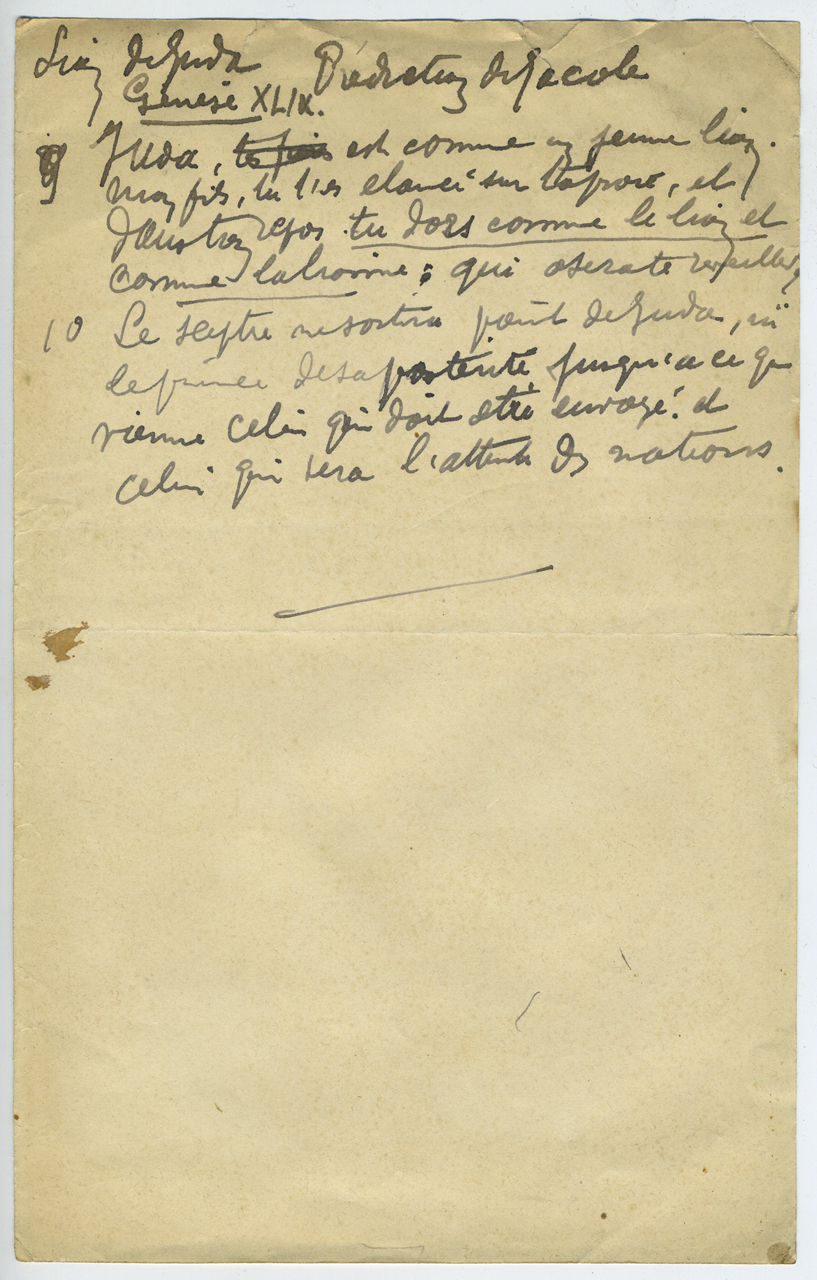 Lion de Juda Prédiction de Jacob
Genese XLIX.
9 Juda, est comme un jeune lion.
mon fils, tu t'es elancé sur la proie, et
dans ton repos tu dors comme le lion et
comme la lionne; qui osera te reveiller
10 Le sceptre ne sortira point de Juda, ni
le prince de sa posterité jusqu'a ce que
vienne celui qui doit etre envoyé. et
celui qui sera l'attente des nations.